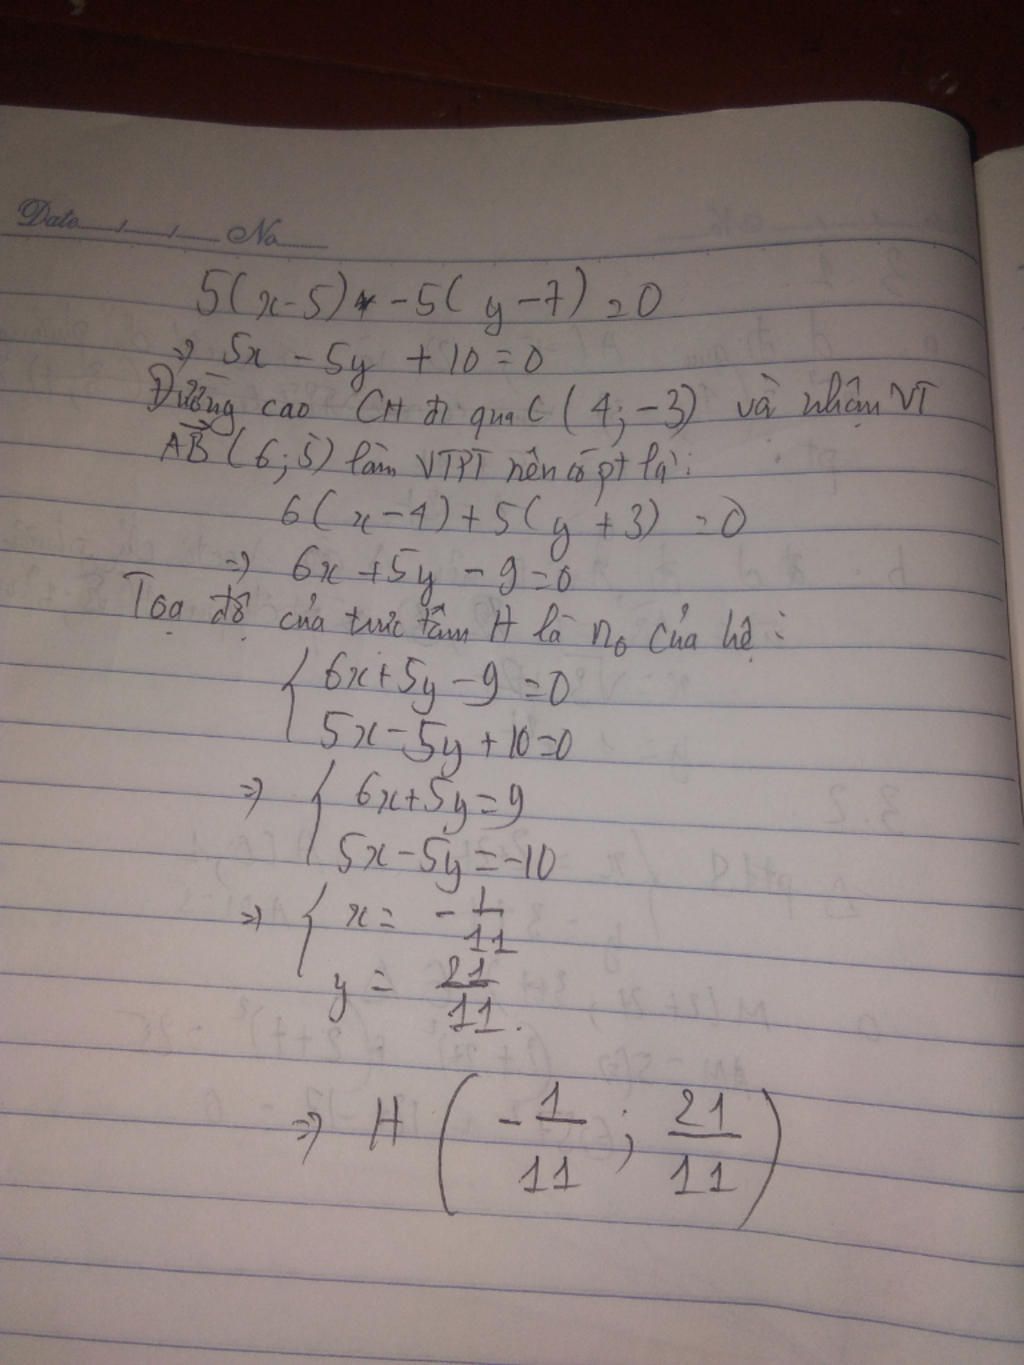 Date / / No
5(x-5) -5(y-7)=0
=> 5x - 5y + 10 = 0
Đường cao CH đi qua C (4;-3) và nhận VT
AB (6;5) làm VTPT nên có pt là:
6(x-4)+5(y+3) = 0
=> 6x +5y - 9=0
Toạ độ của trực tâm H là no của hệ:
6x+5y-9=0
5x-5y+10=0
=> 6x+5y=9
5x-5y=-10
=> x= -1/11
y = 21/11.
=> H (-1/11; 21/11)